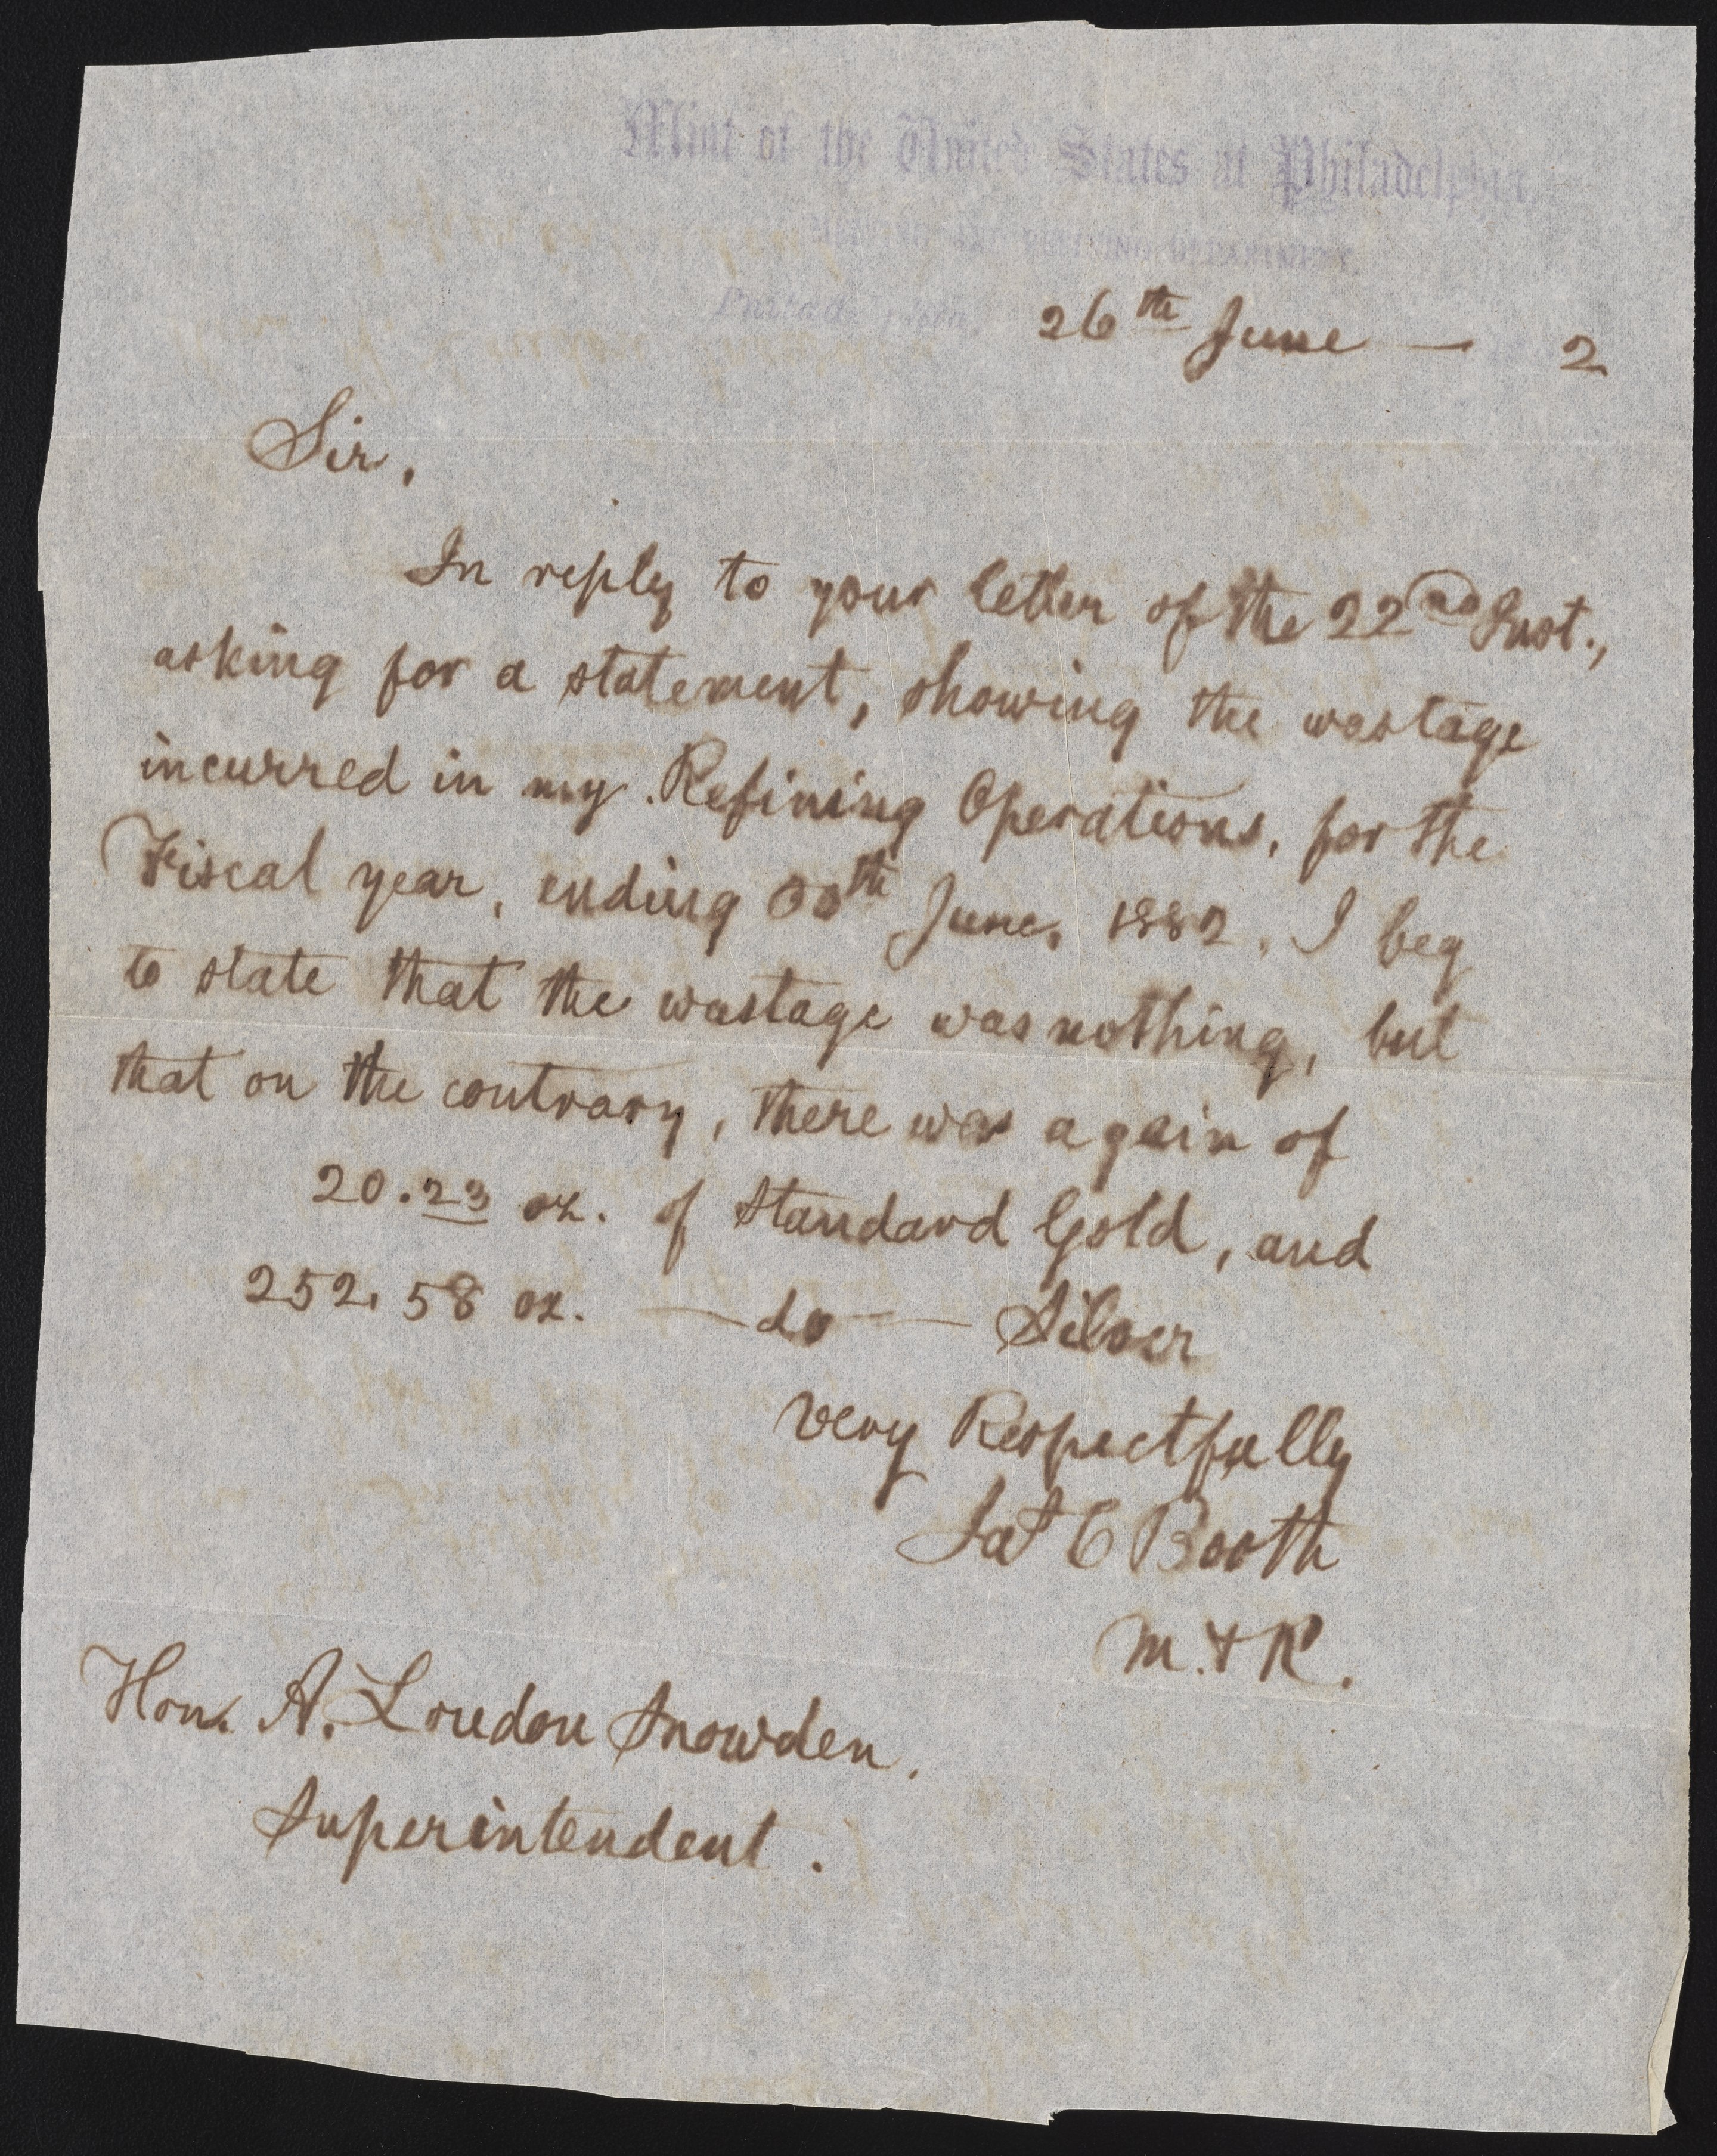 Mint of the United States at Philadelphia,
MELTING AND REFINING DEPARTMENT,
26th June — 2
Sir,
In reply to your letter of the 22nd Inst.,
asking for a statement, showing the wastage
incurred in my Refining Operations, for the
Fiscal year, ending 30th June, 1882, I beg
to state that the wastage was nothing, but
that on the contrary, there was a gain of
20.23 oz. of Standard Gold, and
252.58 oz. — do — Silver
Very Respectfully
Jas C Booth
M. & R.
Hon. A. Loudon Snowden,
Superintendent.